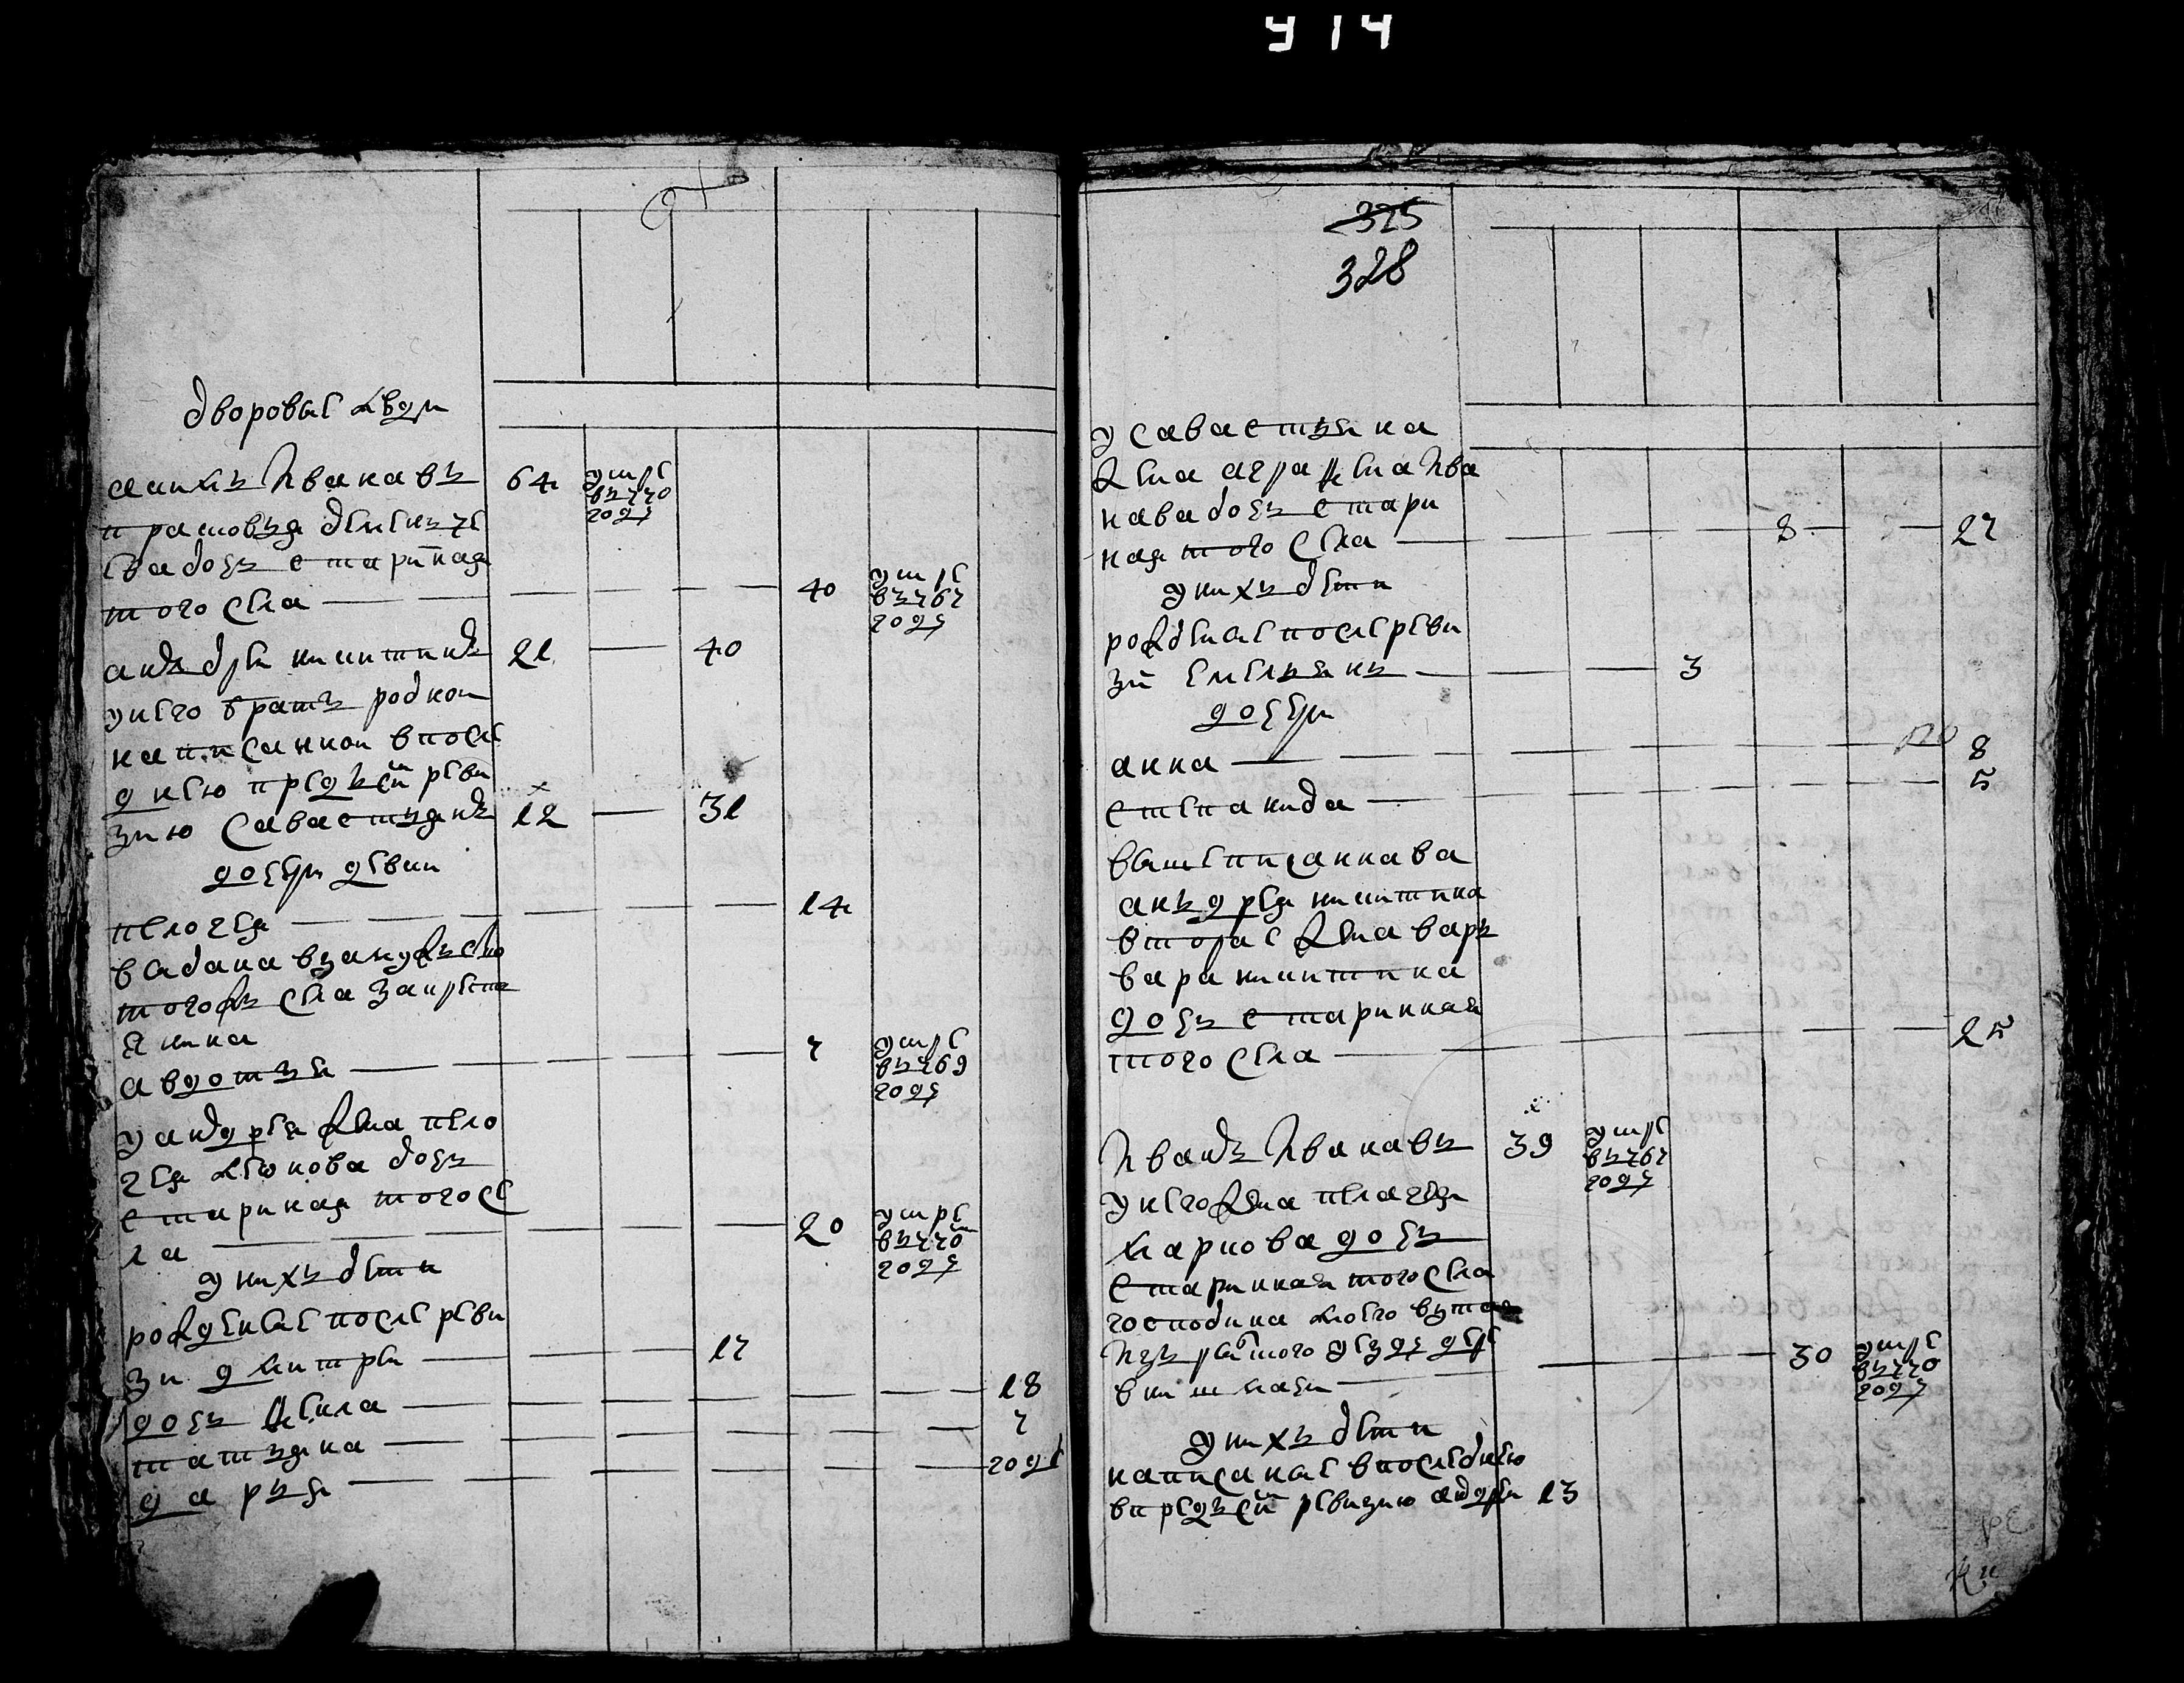 914
дворовые люди
аким Ивановъ 64 умре
въ 770
году
прасковья дементье
ева дочь старинная
того села 40 умре
въ 767
году
андрей никитинъ 21 40
у него братъ родной
написанной в после
днею предъ сей реви
зию савастьянъ 12 31
дочери девки
пелогея 14
выдана в замужество
того ж села за крестья
янина
авдотья 7 умре
въ 769
году
у андрея жена пело
гея леонова дочь
старинная того се
ла 20 умре
въ 770
году
у них дети
рожденые после реви
зи дмитрей 17
дочь фекла 18
татьяна 7
дарья году
325
328
у савастьяна
жена аграфена Ива
нава дочь стари
ная того села 8 27
у нихъ дети
рожденые после реви
зи емельянъ 3
дочери
анна 8
степанида 5
вышеписаннава
андрея никитина
вторая жена варъ
вара никитина
дочь старинная
того села 25
Иванъ Ивановъ 39 умре
въ 767
году
у него жена пелагея
карпова дочь
старинная того села
господина моего взятая
изъ уезду дере
вни 30 умре
въ 770
году
у нихъ дети
написаные в последнею
предъ сей ревизию андрей 13